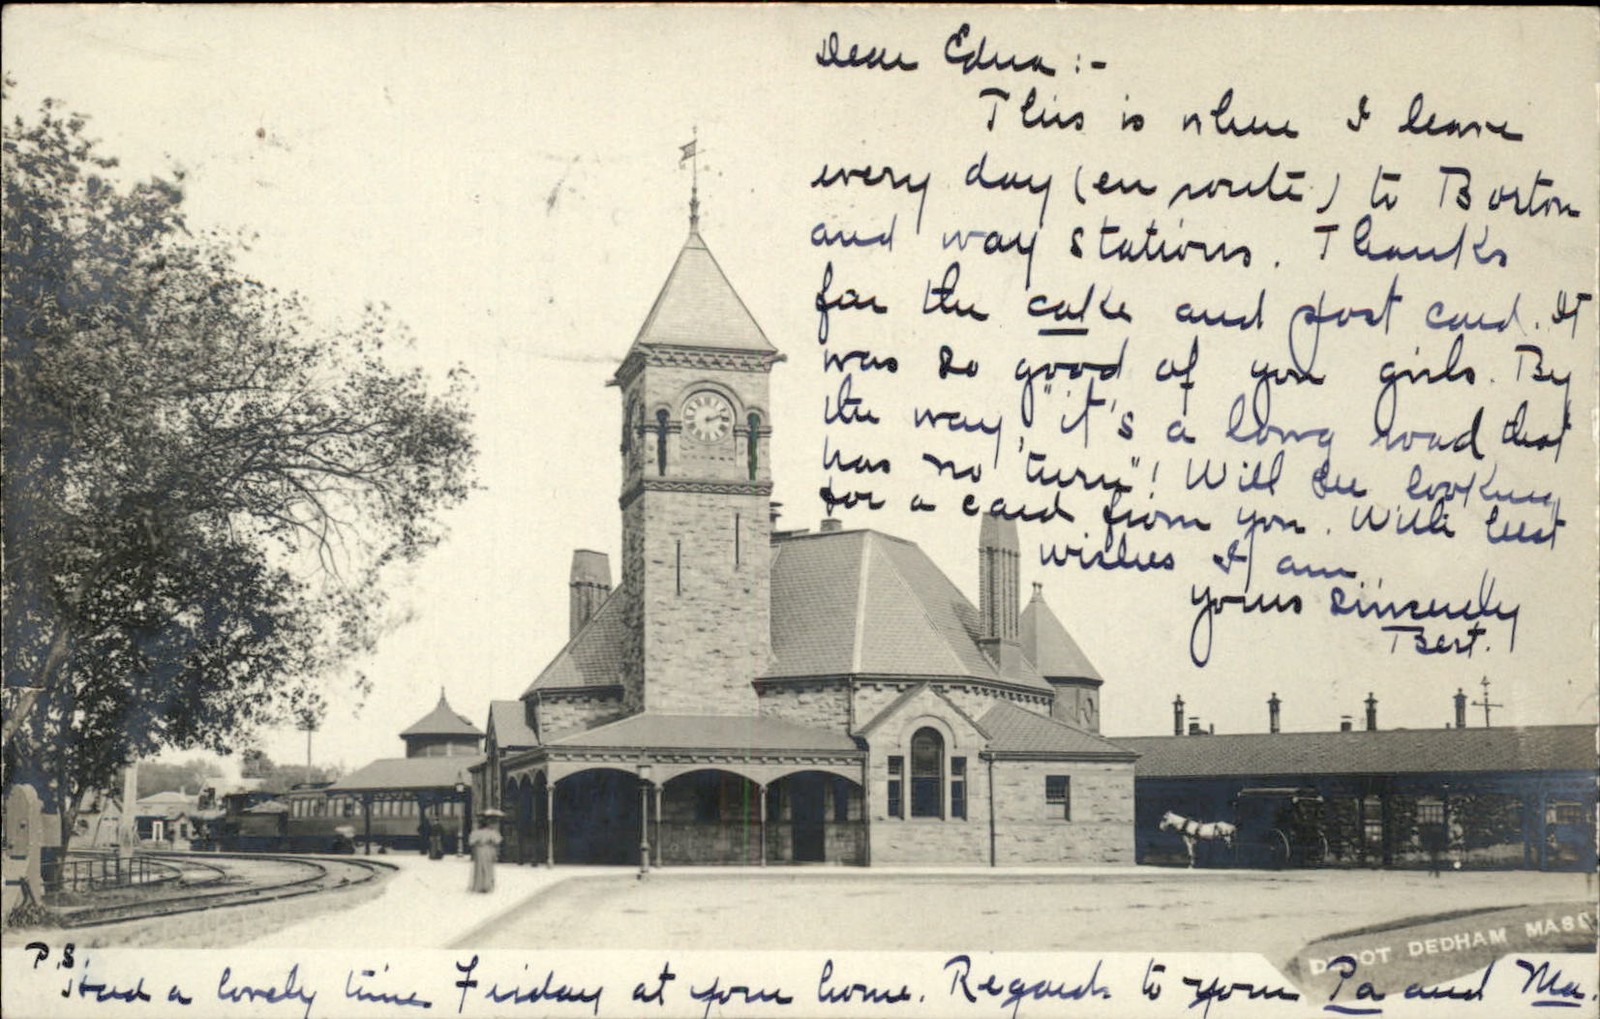 Dear Edna :-
This is where I leave
every day (en route) to Boston
and way stations. Thanks
for the cake and post card. It
was so good of you girls. By
the way, "it's a long road that
has no turn"! Will be looking
for a card from you. With best
wishes I am
yours sincerely
Bert.
DEPOT DEDHAM MASS
P.S.
Had a lovely time Friday at your home. Regards to your Pa and Ma.